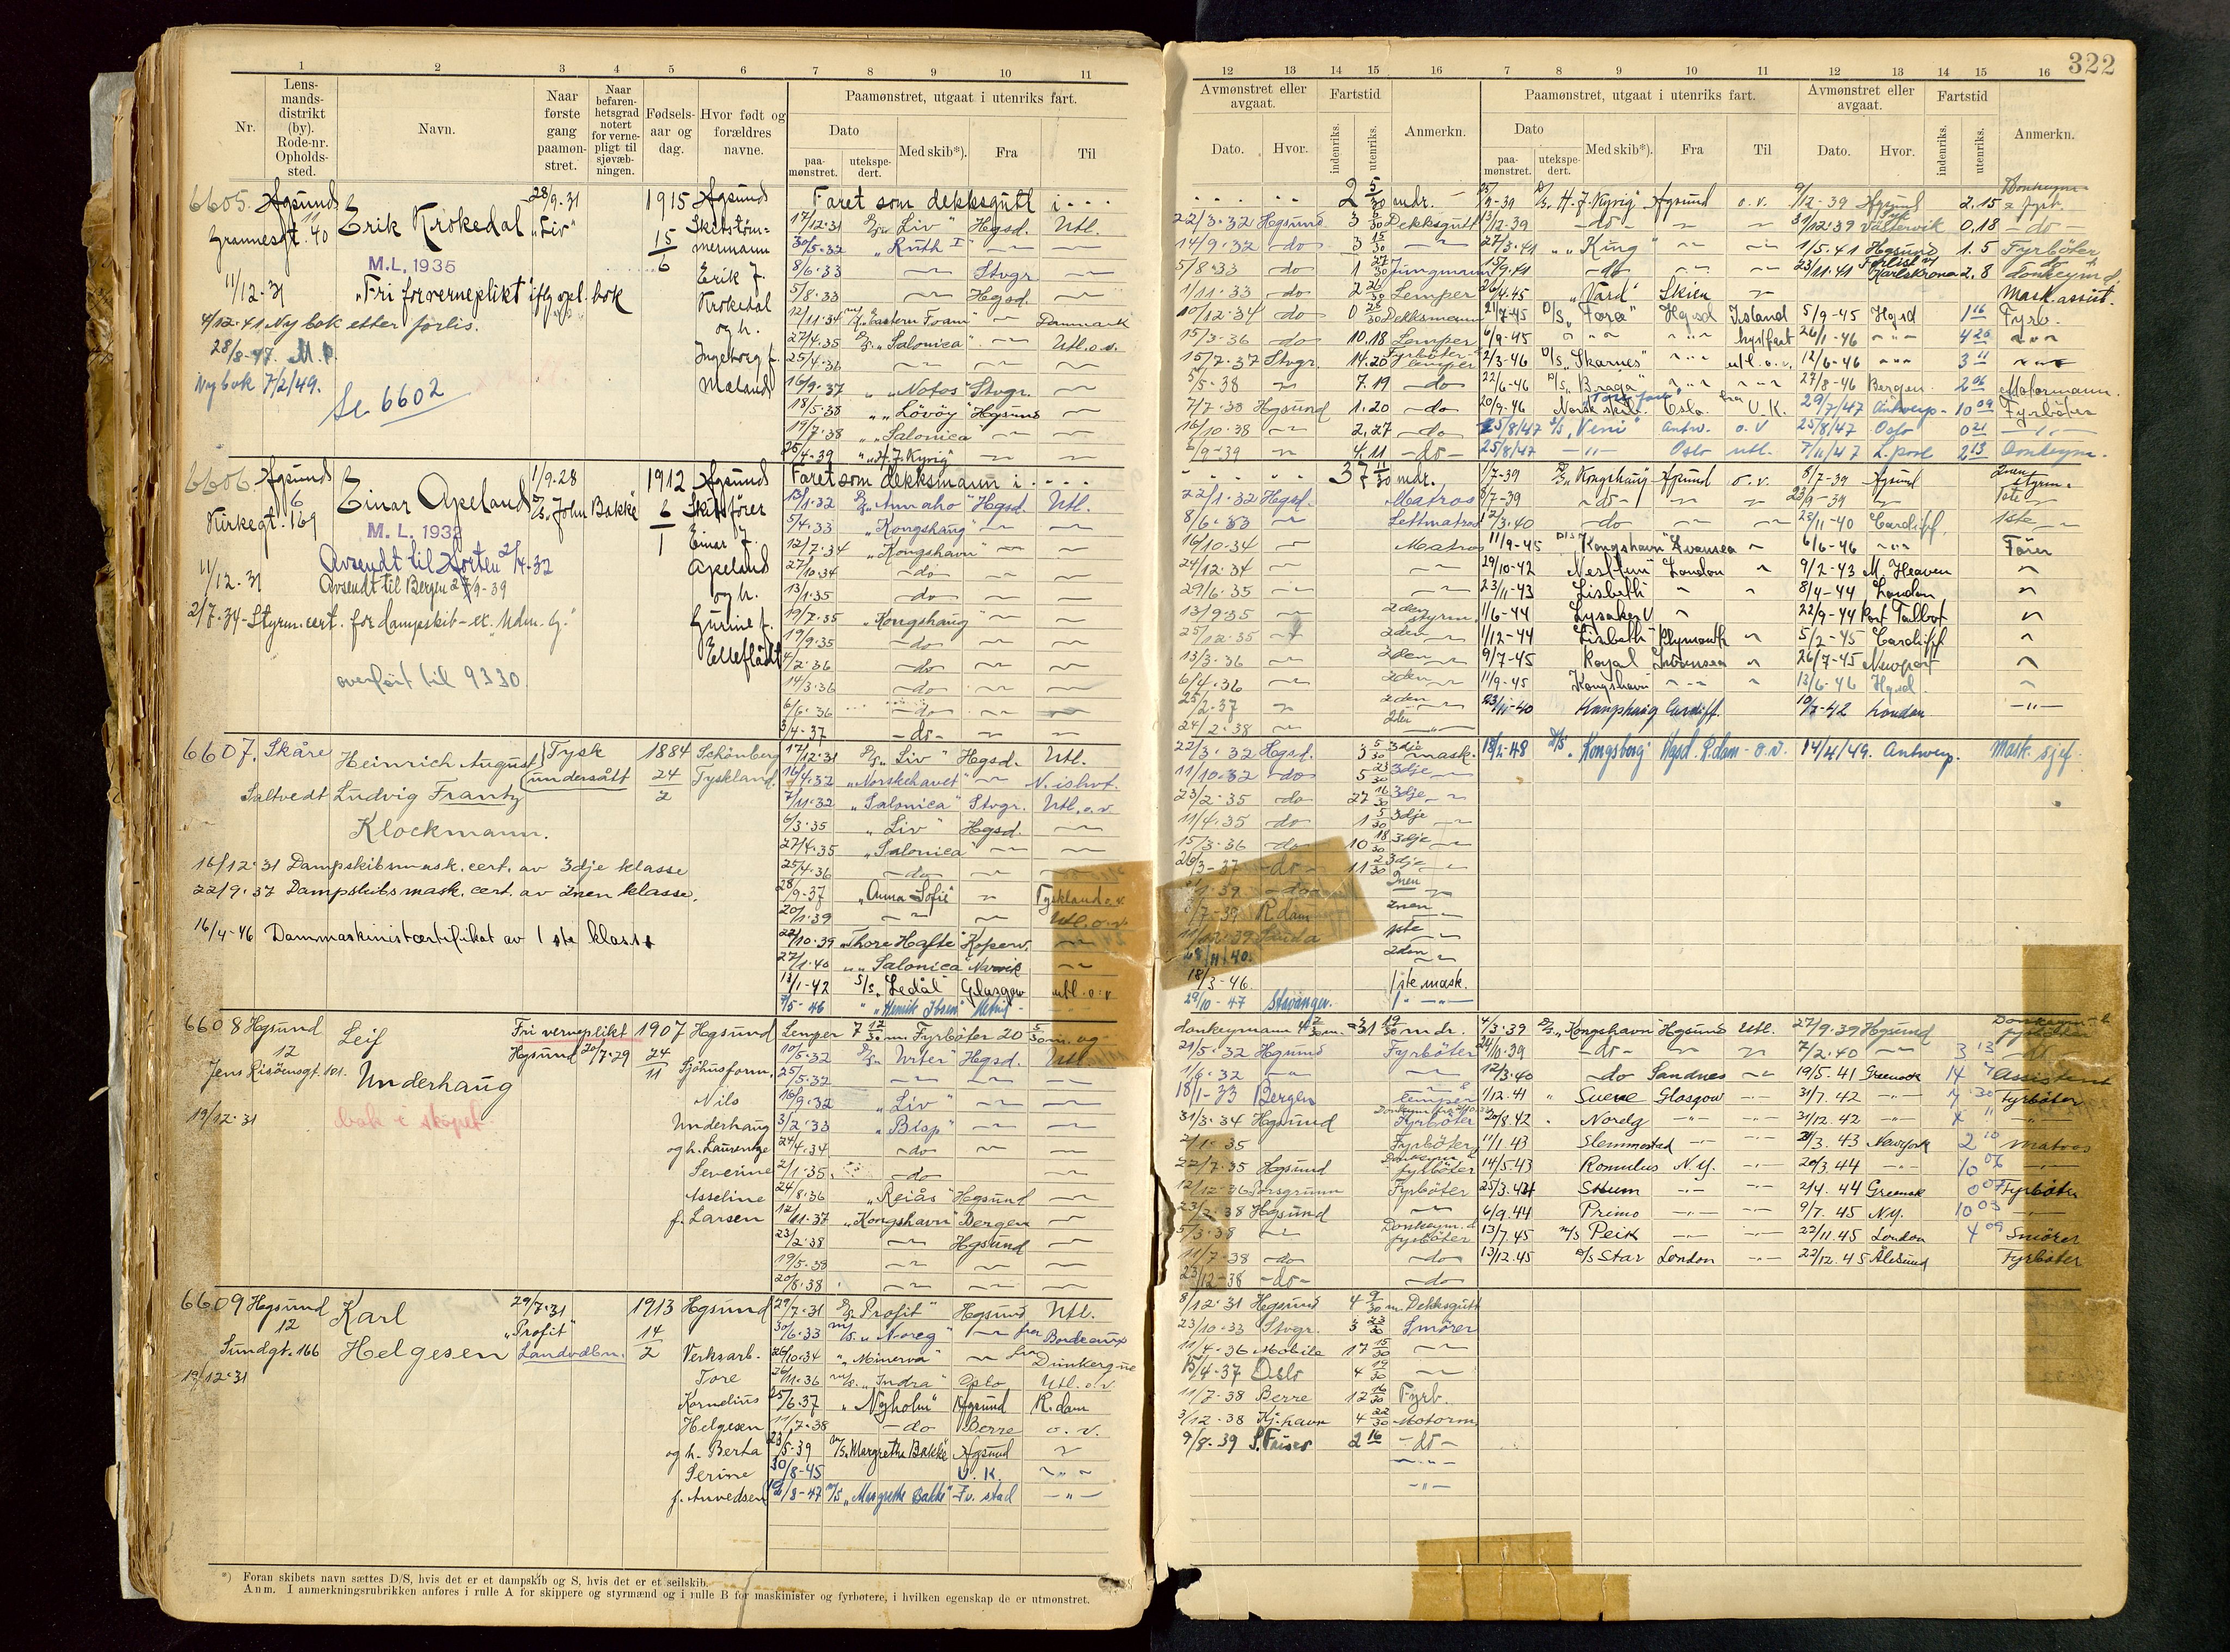 322
1 2 3 4 5 6 7 8 9 10 11
Nr.
Lensmandsdistrikt (by). Rode-nr. Opholdssted.
Navn.
Naar første gang paamønstret.
Naar befarenhetsgrad notert for vernepligt til sjøvæbningen.
Fødselsaar og dag.
Hvor født og forældres navne.
Paamønstret, utgaat i utenriks fart.
Dato
paamønstret. utekspedert.
Med skib*).
Fra
Til
6605. Hgsund 11
Grannesgt. 40
Erik Krokedal
28/9.31
"Liv"
1915
15/6
Hgsund
Skibstømmermann
Erik J.
Krokedal
og h.
Ingeborg f.
Mæland
M.L. 1935
11/12-31
"Fri for verneplikt iflg spl. bok
4/12.41 Ny bok etter forlis.
28/8-47.
Ny bok 7/2/49.
Se 6602
Faret som dekksgutt i . . .
17/12.31 D/S. "Liv" Hgsd. Utl.
30/5-32 "Ruth I" — —
8/6.33 — Stvgr. —
5/8.33 — Hgsd. —
12/11.34 "Eastern Foam" — Danmark
27/4.35 D/S. "Salonica" — Utl. o.v.
25/4-36 — — —
16/9.37 "Notos" Stvgr. —
18/5-38 "Lövöy" Hgsund —
19/7.38 "Salonica" — —
25/4-39 "H.J. Kyrig" — —
6606. Hgsund 6
Kirkegt. 169
Einar Apeland
1/9.28
D/S. John Bakke
1912
6/1
Hgsund
Skibsfører
Einar J.
Apeland
og h.
Gurine f.
Elleflådt
M.L. 1932
Avsendt til Horten 2/4-32
11/12-31 Avsendt til Bergen 27/9-39
2/7.34-Styrm.cert. for dampskib-
overført til 9330.
Faret som dekksmann i . . . .
13/1.32 Hgsd. Utl.
5/4.33 "Kongshaug" — —
12/7.34 "Kongshavn" — —
27/10.34 -do- — —
13/1.35 -do- — —
19/7.35 "Kongshaug" — —
19/9.35 -do- — —
4/2.36 -do- — —
14/3.36 -do- — —
6/6.36 -do- — —
3/4-37 -do- — —
6607. Skåre
Saltvedt
Heinrich August
Ludvig Frantz
Klockmann.
Tysk
undersått
1884
24/2
Schönberg
Tyskland.
16/12.31 Dampskibsmask.cert. av 3dje klasse
22/9.37 Dampskibsmask.cert. av 2nen klasse.
16/4-46 Dammaskinistcertifikat av 1 ste klasse
17/12.31 D/S. "Liv" Hgsd. Utl.
16/4.32 "Norskehavet" — N. ishvt.
7/11.32 "Salonica" Stvgr. Utl. o.v.
6/3.35 "Liv" Hgsd. —
27/4.35 "Salonica" — —
25/4.36 -do- — —
28/9-37 "Anna Sofie" — Tyskland o.v.
20/1.39 — — Utl. o.v.
22/10.39 "Thore Hafte" Kopervi. —
27/1.40 "Salonica" Narvik —
18/1-42 S/S "Ledal" Glasgow utl. o.v
7/5-46 "Henrik Ibsen"
6608 Hgsund 12
Jens Risøensgt. 101.
Leif
Underhaug
Fri verneplikt
Hgsund 20/7.29
1907
24/11
Hgsund
Sjøhusform.
Nils
Underhaug
og h. Laurentze
Severine
Asseline
f. Larsen
19/12.31
bok i skapet
Lemper 7 12/30 m. Fyrbøter 20 5/30 m. og
10/5.32 D/S. "Urter" Hgsd. Utl.
25/5.32 — — —
16/9.32 "Liv" — —
3/2.33 "Bisp" — —
24/4.34 -do- — —
2/1.35. -do- —
24/8.36 "Reiås" Hgsund —
12/11.37 "Kongshavn" Bergen —
23/2.38 — Hgsund —
19/5.38 — — —
20/8.38 — — —
6609 Hgsund 12
Sundgt. 166
Karl
Helgesen
29/7.31
"Profit"
1913
14/2
Hgsund
Verksarb.
Tore
Kornelius
Helgesen
og h. Berta
Serine
f. Anvedsen
19/12.31
29/7.31 D/S. Profit" Hgsund Utl.
30/6.33 "Noreg" — fra Bordeaux
26/10.34 "Minerva" — Dunkerque
26/11.36 "Indra" Oslo Utl. o.v.
25/6.37 "Nyholm" Hgsund R.dam
11/7.38 -do- Berre o.v.
23/5.39 M/S. Margrethe Bakke Hgsund —
30/8-45 U.K. —
/8-47 M/S "Margrethe Bakke" Fr. stad —
*) Foran skibets navn sættes D/S, hvis det er et dampskib og S, hvis det er et seilskib.
Anm. I anmerkningsrubrikken anføres i rulle A for skippere og styrmænd og i rulle B for maskinister og fyrbøtere, i hvilken egenskap de er utmønstret.
12 13 14 15 16 7 8 9 10 11 12 13 14 15 16
Avmønstret eller avgaat.
Dato. Hvor.
Fartstid
indenriks. utenriks.
Anmerkn.
Paamønstret, utgaat i utenriks fart.
Dato
paamønstret. utekspedert.
Med skib*).
Fra
Til
Avmønstret eller avgaat.
Dato. Hvor.
Fartstid
indenriks. utenriks.
Anmerkn.
. . . . 2 5/30 mdr. — D/S. H.J. Kyrig" Hgsund o.v. 9/12-39 Hgsund 2.15
22/3.32 Hgsund Dekksgutt 13/12-39 -do- — — 31/12.39 Västervik 0.18 -do-
14/9.32 -do- 3 15/30 — 27/3.41 "King" — — 1/5.41 Hgsund 1.5 Fyrbøter
5/8.33 -do- 1 27/30 Jungmann 15/9.41 -do- — — 23/11.41 Forlist v/ Karlskrona 2.8 donkeym.
1/11.33 -do- Lemper 26/4.45 "Vard" Skien — Mask.assist.
10/12.34 do 0 Dekksmann 21/7-45 D/S "Tora" Hgsd Island 5/9-45 Hgsd 1 16 Fyrb.
15/3-36 do 10.18 Lemper 6/9-45 kystfart 26/1-46 4 20
15/7.37 Stvgr. 14.20 Fyrbøter-lemper 2/3-46 D/S "Skarnes" utl. o.v. 12/6-46 3 11
5/5-38 — 7.19 -do- 22/6-46 D/S "Braga" 27/8-46 Bergen 2 06 Motormann.
7/7.38 Hgsund 1.20 -do- 20/9-46 Norsk skib. Oslo. fra U.K. 29/7/47 Antwerp - 10 09 Fyrbøter
16/10.38 — 2.27 -do 25/8/47 S/S "Veni" Antw. o.v 25/8/47 Oslo 0 21
/9-39 — 4.11 -do- 25/8/47 Oslo utl. 7/11/47 L.pool 2 13 Donkeym.
37 11/30 mdr. 1/7-39 D/S. Kongshaug Hgsund o.v. 8/7-39 Hgsund 2nen styrm.
22/1.32 Hgsd. Matros 8/7-39 -do- — — 23/9-39 —
8/6.33 — Lettmatros 12/3.40 -do- — — 23/11-40 Cardiff 1ste —
16/10.34 — Matros 11/9-45 D/S "Kongshavn" Svansea — 6/6-46 Fører
24/12.34 — — 29/10-42 Nesttun London — 9/2-43 M. Heaven
29/6.35 — — 23/11-43 Lisbeth — — 8/4-44 London
13/9.35 — 2den styrm. 11/6-44 Lysaker V — 22/9-44 Port Talbot
25/12.35 — 2den — 1/12-44 Lisbeth Plymouth — 5/2-45 Cardiff
13/3-36 — 2den — 9/7-45 Royal Svansea — 26/7-45 Newport
6/4.36 — 2den — 11/9-45 Kongshavn — 13/6-46 Hgsd
25/2.37 — 2den — 23/11-40 Kongshaug Cardiff 10/7-42 London
24/2.38 — 2den —
22/3.32 Hgsd. 3 5/30 3dje mask. 18/2-48 D/S "Kongsborg" Hgsd. R.dam - o.v. 14/4/49. Antwerp. Mask. sjef
11/10.32 -do 5 23/30 3dje —
23/2.35 -do 27 16/30 3dje —
11/4.35 -do 1 5/30 3dje —
15/3.36 -do 10 18/30 3dje —
26/3-37 -do- 11 2/30 3dje —
/1.39 -do- 2nen —
/7-39 R.dam 2nen —
11/12.39 Sauda 1ste —
28/11/40. 2den —
18/3-46. 1ste mask.
29/10-47 Stavanger.
donkeymann 31 19/30 mdr. 4/3.39 D/S. "Kongshavn" Hgsund Utl. 27/9.39 Hgsund Donkeym. & fyrbøter
21/5.32 Hgsund Fyrbøter 24/10.39 -do- — — 7/2.40 — 3 13 -do-
1/6.32 — — 12/3.40 -do Sandnes — 19/5.41 Greenock 14 Assistent
18/1-33 Bergen lemper 1/12.41 Suene Glasgow 31/7.42 7 30 Fyrbøter
31/3.34 Hgsund Fyrbøter 20/8.42 Nordg 31/12.42
2/1.35 Fyrbøter 11/1.43 Slemmestad 21/3.43 New York 2 10 Matros
22/7.35 Hgsund fyrbøter 14/5-43 Romulus N.Y. 20/3.44 10 06
12/12-36 Porsgrunn Fyrbøter 25/3.44 2/4.44 Greenock 0 07 Fyrbøter
23/2.38 Hgsund — 6/9.44 Primo 9/7.45 N.Y. 10 03
5/3.38 — Donkeym. & fyrbøter 13/7.45 M/S Peik 22/11.45 London 4 09 Smører
11/7-38 -do- -do 13/12.45 D/S Star London 22/12.45 Ålesund Fyrbøter
23/12-38 -do- -do
8/12.31 Hgsund 4 9/30 m. Dekksgutt
23/10.33 Stvgr. 3 23/30 Smører
11/4-36 Mobile 17 15/30 —
15/4-37 Oslo 4 19/30 —
11/7-38 Berre 12 16/30 Fyrb.
3/12-38 Kj.havn 4 22/30 Motorm.
9/8-39 2 16 -do-